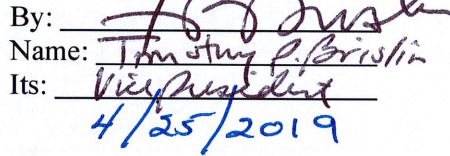 By:
Name: Timothy P. Brislin
Its: Vice President
4/25/2019